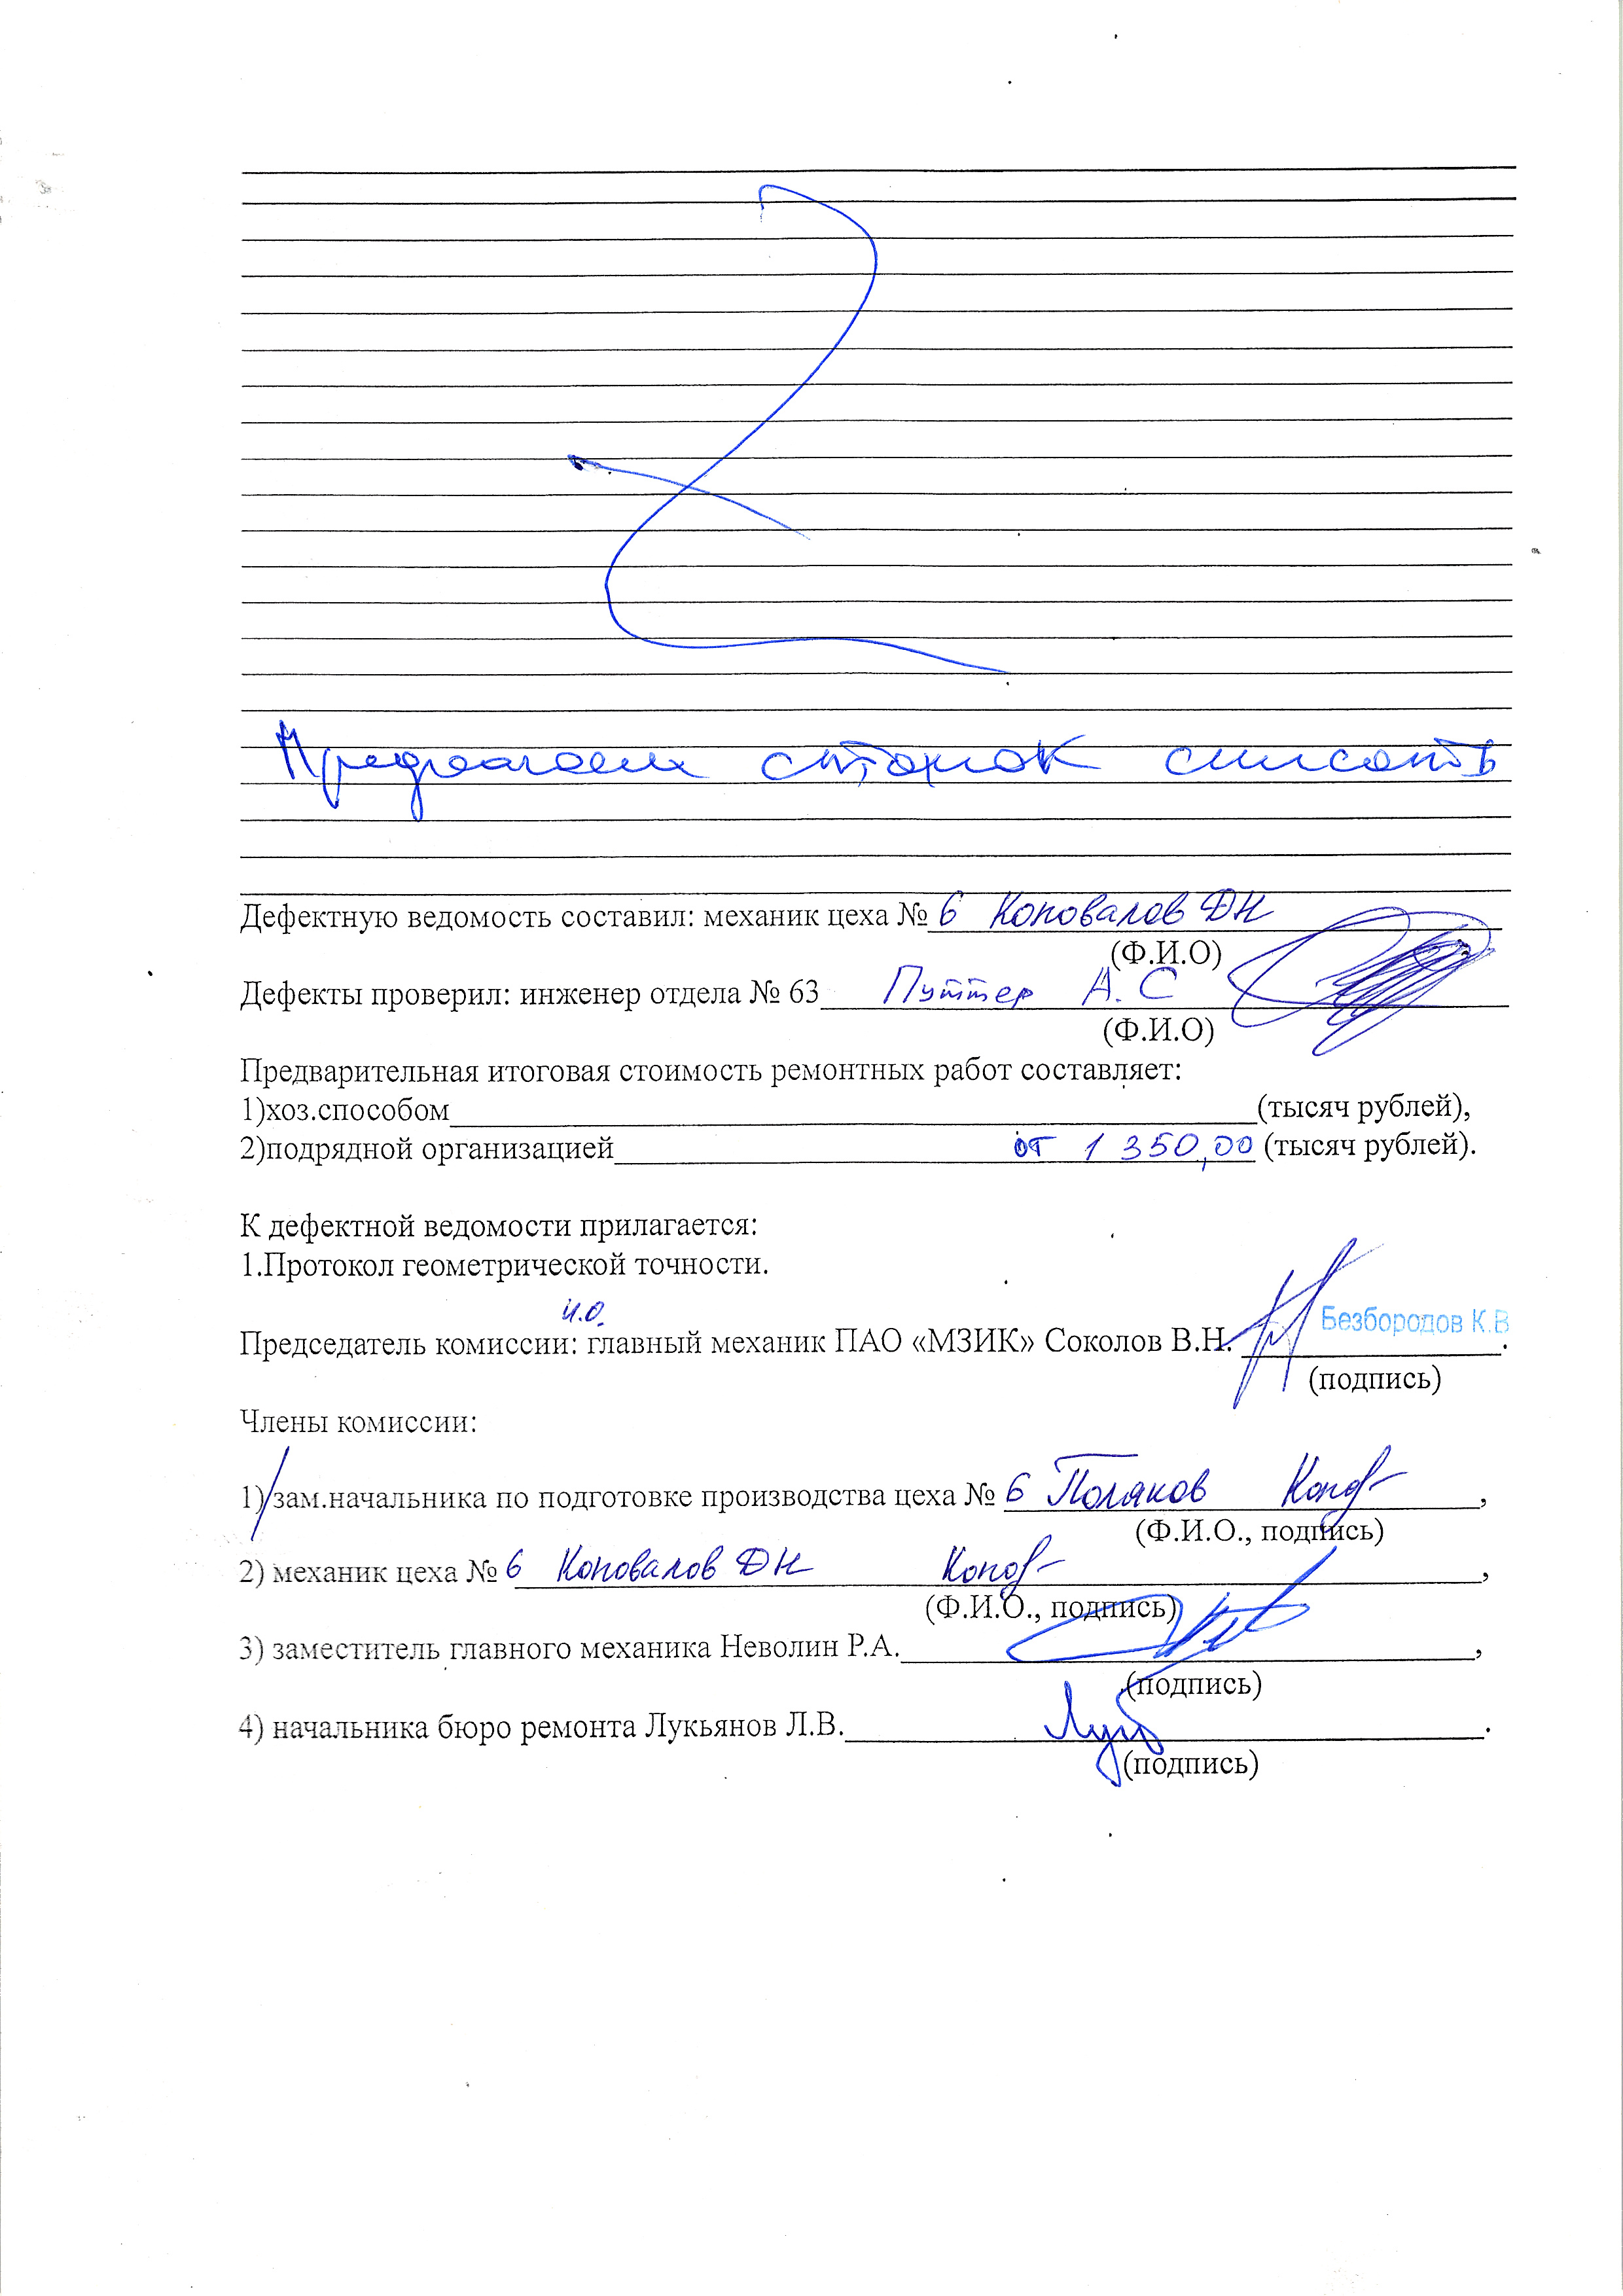 Предлагаем станок списать
Дефектную ведомость составил: механик цеха № 6 Коновалов ДН
(Ф.И.О)
Дефекты проверил: инженер отдела № 63 Путтер А.С
(Ф.И.О)
Предварительная итоговая стоимость ремонтных работ составляет:
1)хоз.способом (тысяч рублей),
2)подрядной организацией от 1 350,00 (тысяч рублей).
К дефектной ведомости прилагается:
1.Протокол геометрической точности.
и.о.
Председатель комиссии: главный механик ПАО «МЗИК» Соколов В.Н. Безбородов К.В.
(подпись)
Члены комиссии:
1) зам.начальника по подготовке производства цеха № 6 Поляков
(Ф.И.О., подпись)
2) механик цеха № 6 Коновалов ДН
(Ф.И.О., подпись)
3) заместитель главного механика Неволин Р.А. ,
(подпись)
4) начальника бюро ремонта Лукьянов Л.В. .
(подпись)